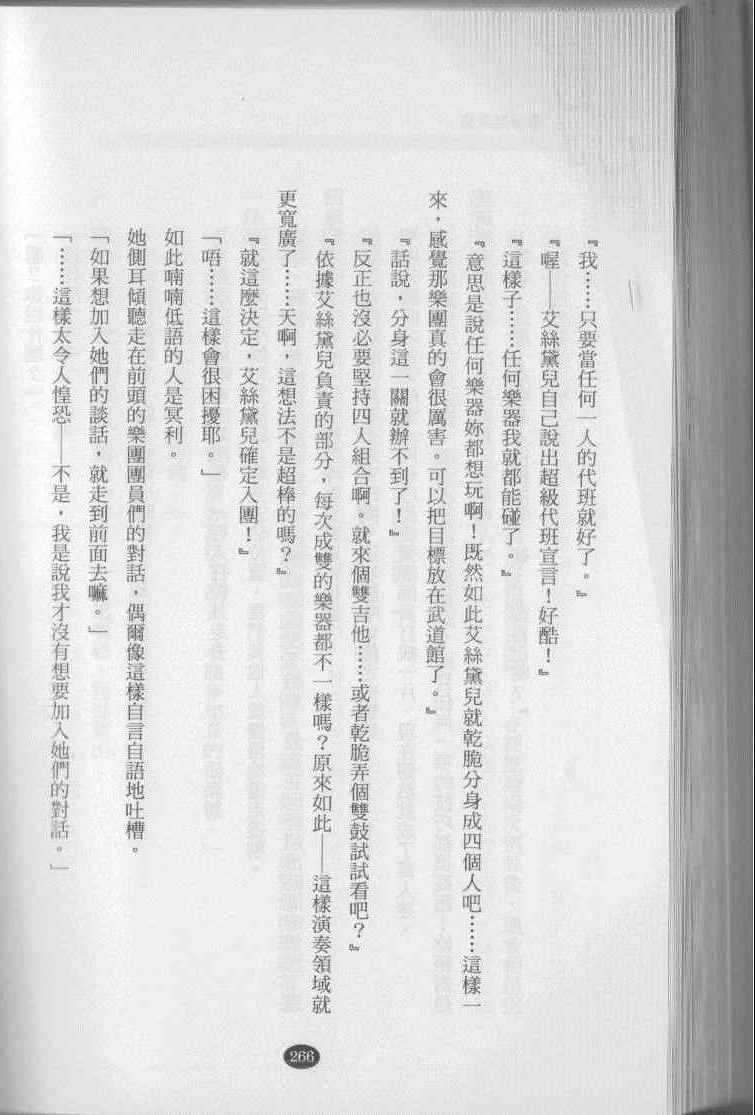 『我……只要當任何一人的代班就好了。』
『喔——艾絲黛兒自己說出超級代班宣言！好酷！』
『這樣子……任何樂器我就都能碰了。』
『意思是說任何樂器妳都想玩啊！既然如此艾絲黛兒就乾脆分身成四個人吧……這樣一
來，感覺那樂團真的會很厲害。可以把目標放在武道館了。』
『話說，分身這一關就辦不到了！』
『反正也沒必要堅持四人組合啊。就來個雙吉他……或者乾脆弄個雙鼓試試看吧？』
『依據艾絲黛兒負責的部分，每次成雙的樂器都不一樣嗎？原來如此——這樣演奏領域就
更寬廣了……天啊，這想法不是超棒的嗎？』
『就這麼決定，艾絲黛兒確定入團！』
「唔……這樣會很困擾耶。」
如此喃喃低語的人是冥利。
她側耳傾聽走在前頭的樂團團員們的對話，偶爾像這樣自言自語地吐槽。
「如果想加入她們的談話，就走到前面去嘛。」
「……這樣太令人惶恐——不是，我是說我才沒有想要加入她們的對話。」
266